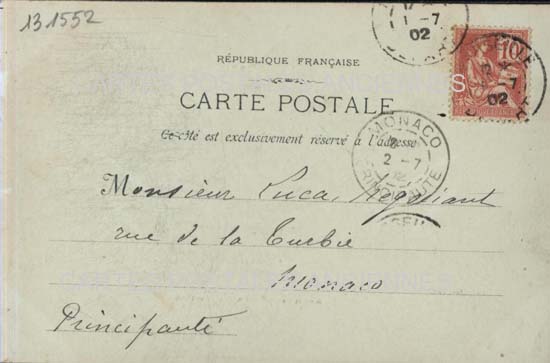 131552
1-7
02
10
7
02
RÉPUBLIQUE FRANÇAISE
CARTE POSTALE
Ce côté est exclusivement réservé à l'adresse
MONACO
2-7
02
PRINCIPAUTÉ
Monsieur Luca, Négociant
rue de la Turbie
Monaco
Principauté